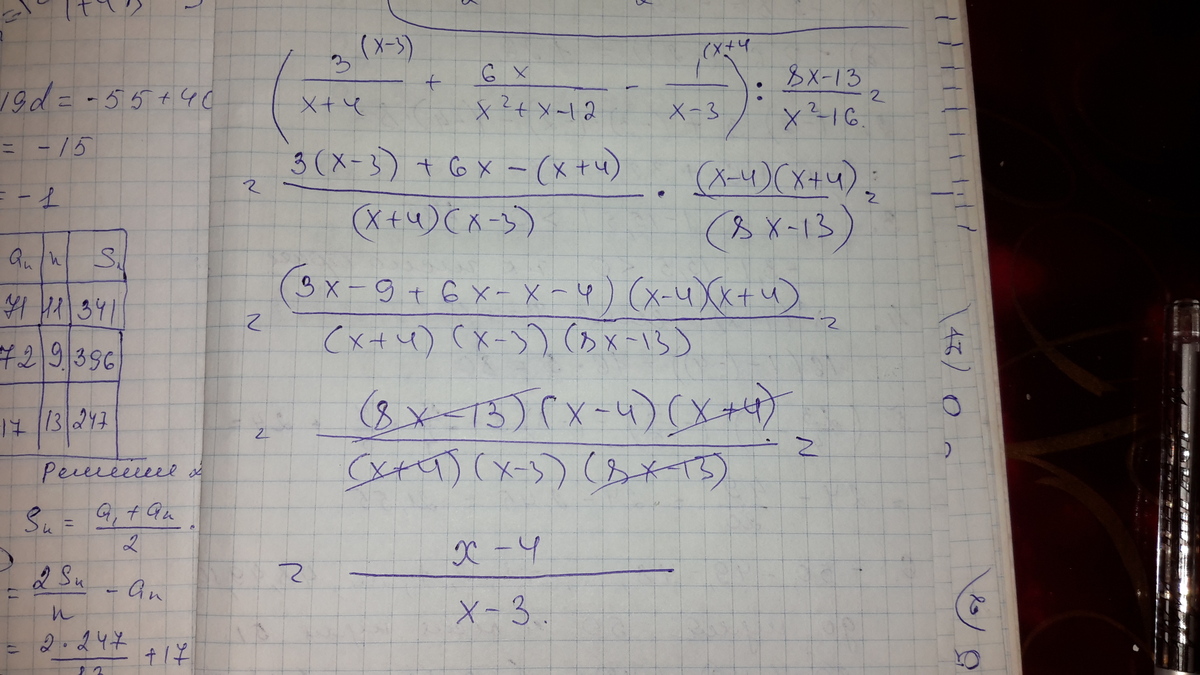 19d = -55 + 40
= -15
= -1
aₙ n Sₙ
71 11 341
72 9 396
17 13 247
Решение
Sₙ = (a₁ + aₙ)/2 ·
= 2Sₙ/n - aₙ
= 2·247/13 + 17
(3^(x-3)/(x+4) + 6x/(x²+x-12) - 1^(x+4/(x-3)) : (8x-13)/(x²-16) =
= (3(x-3) + 6x - (x+4))/((x+4)(x-3)) · ((x-4)(x+4))/((8x-13)) =
= ((3x-9+6x-x-4)(x-4)(x+4))/((x+4)(x-3)(8x-13)) =
= ((8x-13)(x-4)(x+4))/((x+4)(x-3)(8x-13)) =
= (x-4)/(x-3)